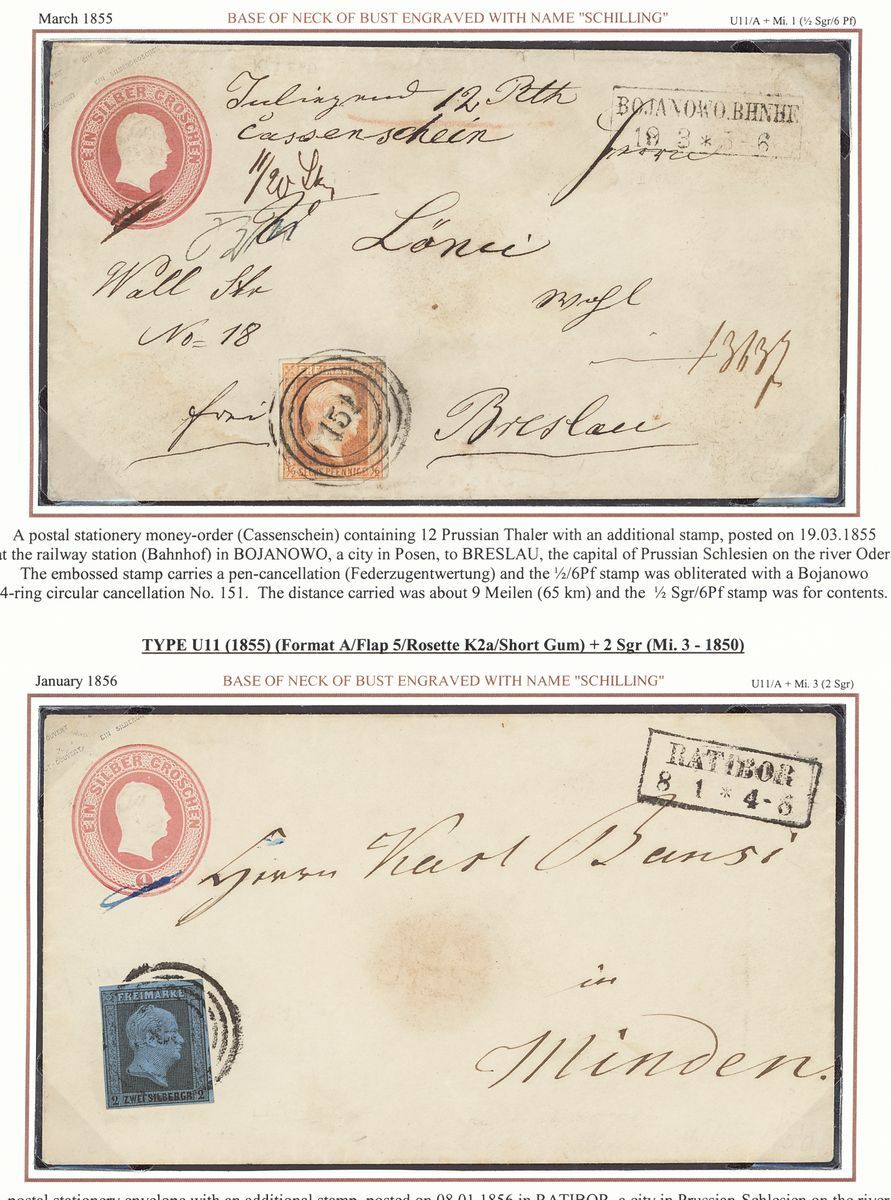 March 1855
BASE OF NECK OF BUST ENGRAVED WITH NAME "SCHILLING"
U11/A + Mi. 1 (½ Sgr/6 Pf)
EIN SILBER GROSCHEN
12 Rth
Cassenschein
BOJANOWO.BHNHF
19 3 * 5 - 6
11/20
Wall Str
wohl
No= 18
13137
frei
Breslau
FREIMARKE
151
½ SECHS PFENNIGE ½
A postal stationery money-order (Cassenschein) containing 12 Prussian Thaler with an additional stamp, posted on 19.03.1855
at the railway station (Bahnhof) in BOJANOWO, a city in Posen, to BRESLAU, the capital of Prussian Schlesien on the river Oder.
The embossed stamp carries a pen-cancellation (Federzugentwertung) and the ½/6Pf stamp was obliterated with a Bojanowo
4-ring circular cancellation No. 151. The distance carried was about 9 Meilen (65 km) and the ½ Sgr/6Pf stamp was for contents.
TYPE U11 (1855) (Format A/Flap 5/Rosette K2a/Short Gum) + 2 Sgr (Mi. 3 - 1850)
January 1856
BASE OF NECK OF BUST ENGRAVED WITH NAME "SCHILLING"
U11/A + Mi. 3 (2 Sgr)
EIN SILBER GROSCHEN
1
RATIBOR
8 1 * 4-6
Herrn Karl Bansi
in
Minden.
FREIMARKE
2 ZWEI SILBERGR. 2
postal stationery envelope with an additional stamp, posted on 08.01.1856 in RATIBOR, a city in Prussian Schlesien on the river